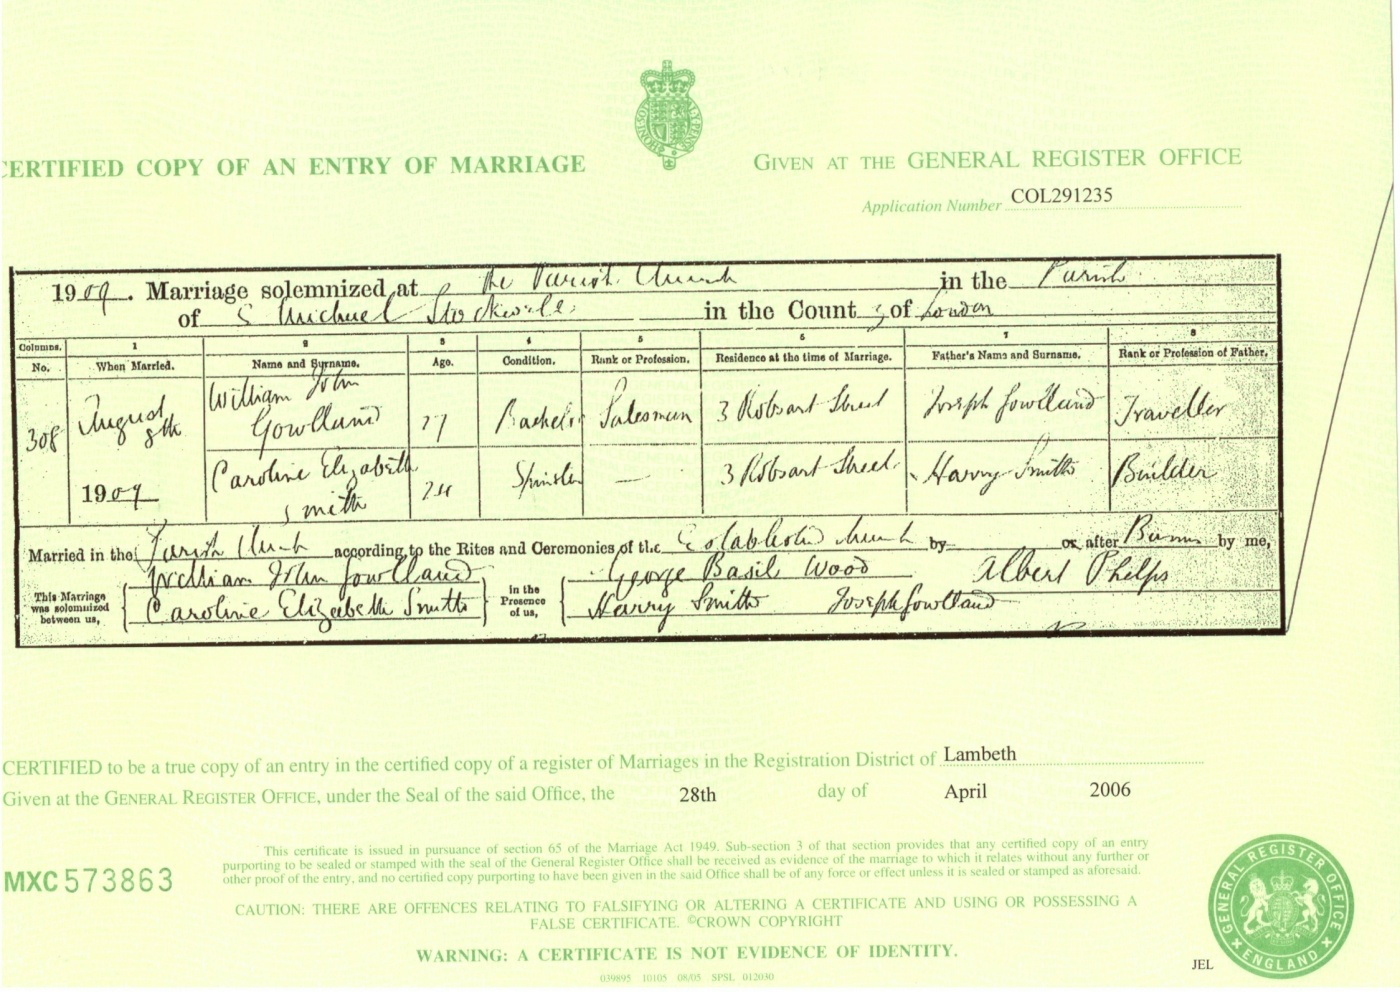 CERTIFIED COPY OF AN ENTRY OF MARRIAGE
GIVEN AT THE GENERAL REGISTER OFFICE
Application Number COL291235
1909. Marriage solemnized at The Parish Church in the Parish
of S Michael Stockwell in the County of London
Columns. 1 2 3 4 5 6 7 8
No. When Married. Name and Surname. Age. Condition. Rank or Profession. Residence at the time of Marriage. Father's Name and Surname. Rank or Profession of Father.
308 August 8th 1909 William John Gowlland 27 Bachelor Salesman 3 Robsart Street Joseph Gowlland Traveller
Caroline Elizabeth Smith 24 Spinster — 3 Robsart Street Harry Smith Builder
Married in the Parish Church according to the Rites and Ceremonies of the Established Church by or after Banns by me,
This Marriage was solemnized between us, William John Gowlland Caroline Elizabeth Smith in the Presence of us, George Basil Wood Harry Smith Joseph Gowlland Albert Phelps
CERTIFIED to be a true copy of an entry in the certified copy of a register of Marriages in the Registration District of Lambeth
Given at the GENERAL REGISTER OFFICE, under the Seal of the said Office, the 28th day of April 2006
This certificate is issued in pursuance of section 65 of the Marriage Act 1949. Sub-section 3 of that section provides that any certified copy of an entry
purporting to be sealed or stamped with the seal of the General Register Office shall be received as evidence of the marriage to which it relates without any further or
other proof of the entry, and no certified copy purporting to have been given in the said Office shall be of any force or effect unless it is sealed or stamped as aforesaid.
MXC 573863
CAUTION: THERE ARE OFFENCES RELATING TO FALSIFYING OR ALTERING A CERTIFICATE AND USING OR POSSESSING A
FALSE CERTIFICATE. ©CROWN COPYRIGHT
WARNING: A CERTIFICATE IS NOT EVIDENCE OF IDENTITY.
039895 10105 08/05 SPSL 012030
JEL
GENERAL REGISTER OFFICE ENGLAND